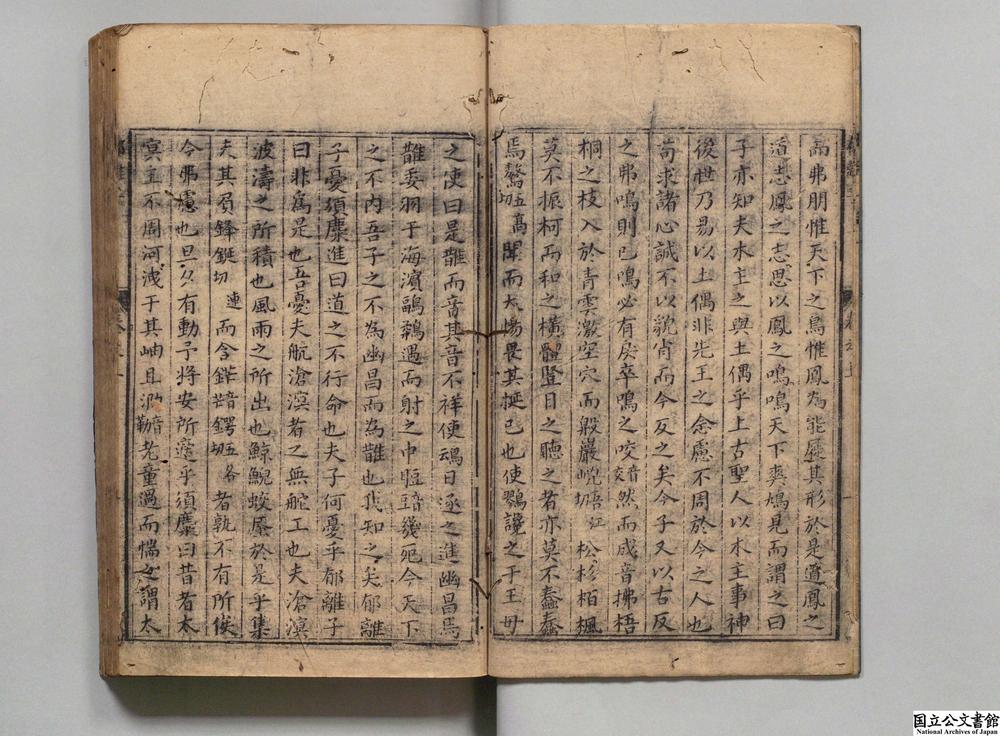 高弗朋惟天下之鳥惟鳳為能屣其形於是道鳳之
道志鳳之志思以鳳之鳴鳴天下奭鳩見而謂之曰
子亦知夫木主之與土偶乎上古聖人以木主事神
後世乃易以土偶非先王之念慮不周於今之人也
苟求諸心誠不以貌肖而今反之矣今子又以古反
之弗鳴則已鳴必有戾卒鳴之咬音交然而成音拂梧
桐之枝入於青雲激空穴而殷巖 松杉栢楓
莫不振柯而和之橫體豎目之聽之者亦莫不蠢蠢
焉鶩五高切聞而大惕畏其挻已也使鷚讒之于王母
之使曰是鵲而音其音不祥使䳒日逐之進幽昌焉
鵲委羽于海濱 遇而射之中脰音豆幾死今天下
之不內吾子之不為幽昌而為鵲也我知之矣郁離
子憂須麋進曰道之不行命也夫子何憂乎郁離子
曰非為是也吾憂夫航滄溟者之無舵工也夫滄溟
波濤之所積也風雨之所出也鯨鯢蛟蜃於是乎集
夫其負鋒鋋 連切而含鋩音芒鍔五各切者孰不有所俟
今弗慮也旦夕有動予將安所適乎須麋曰昔者太
冥主不周河洩于其岫且泐音勒老童過而惴之謂太
国立公文書館
National Archives of Japan